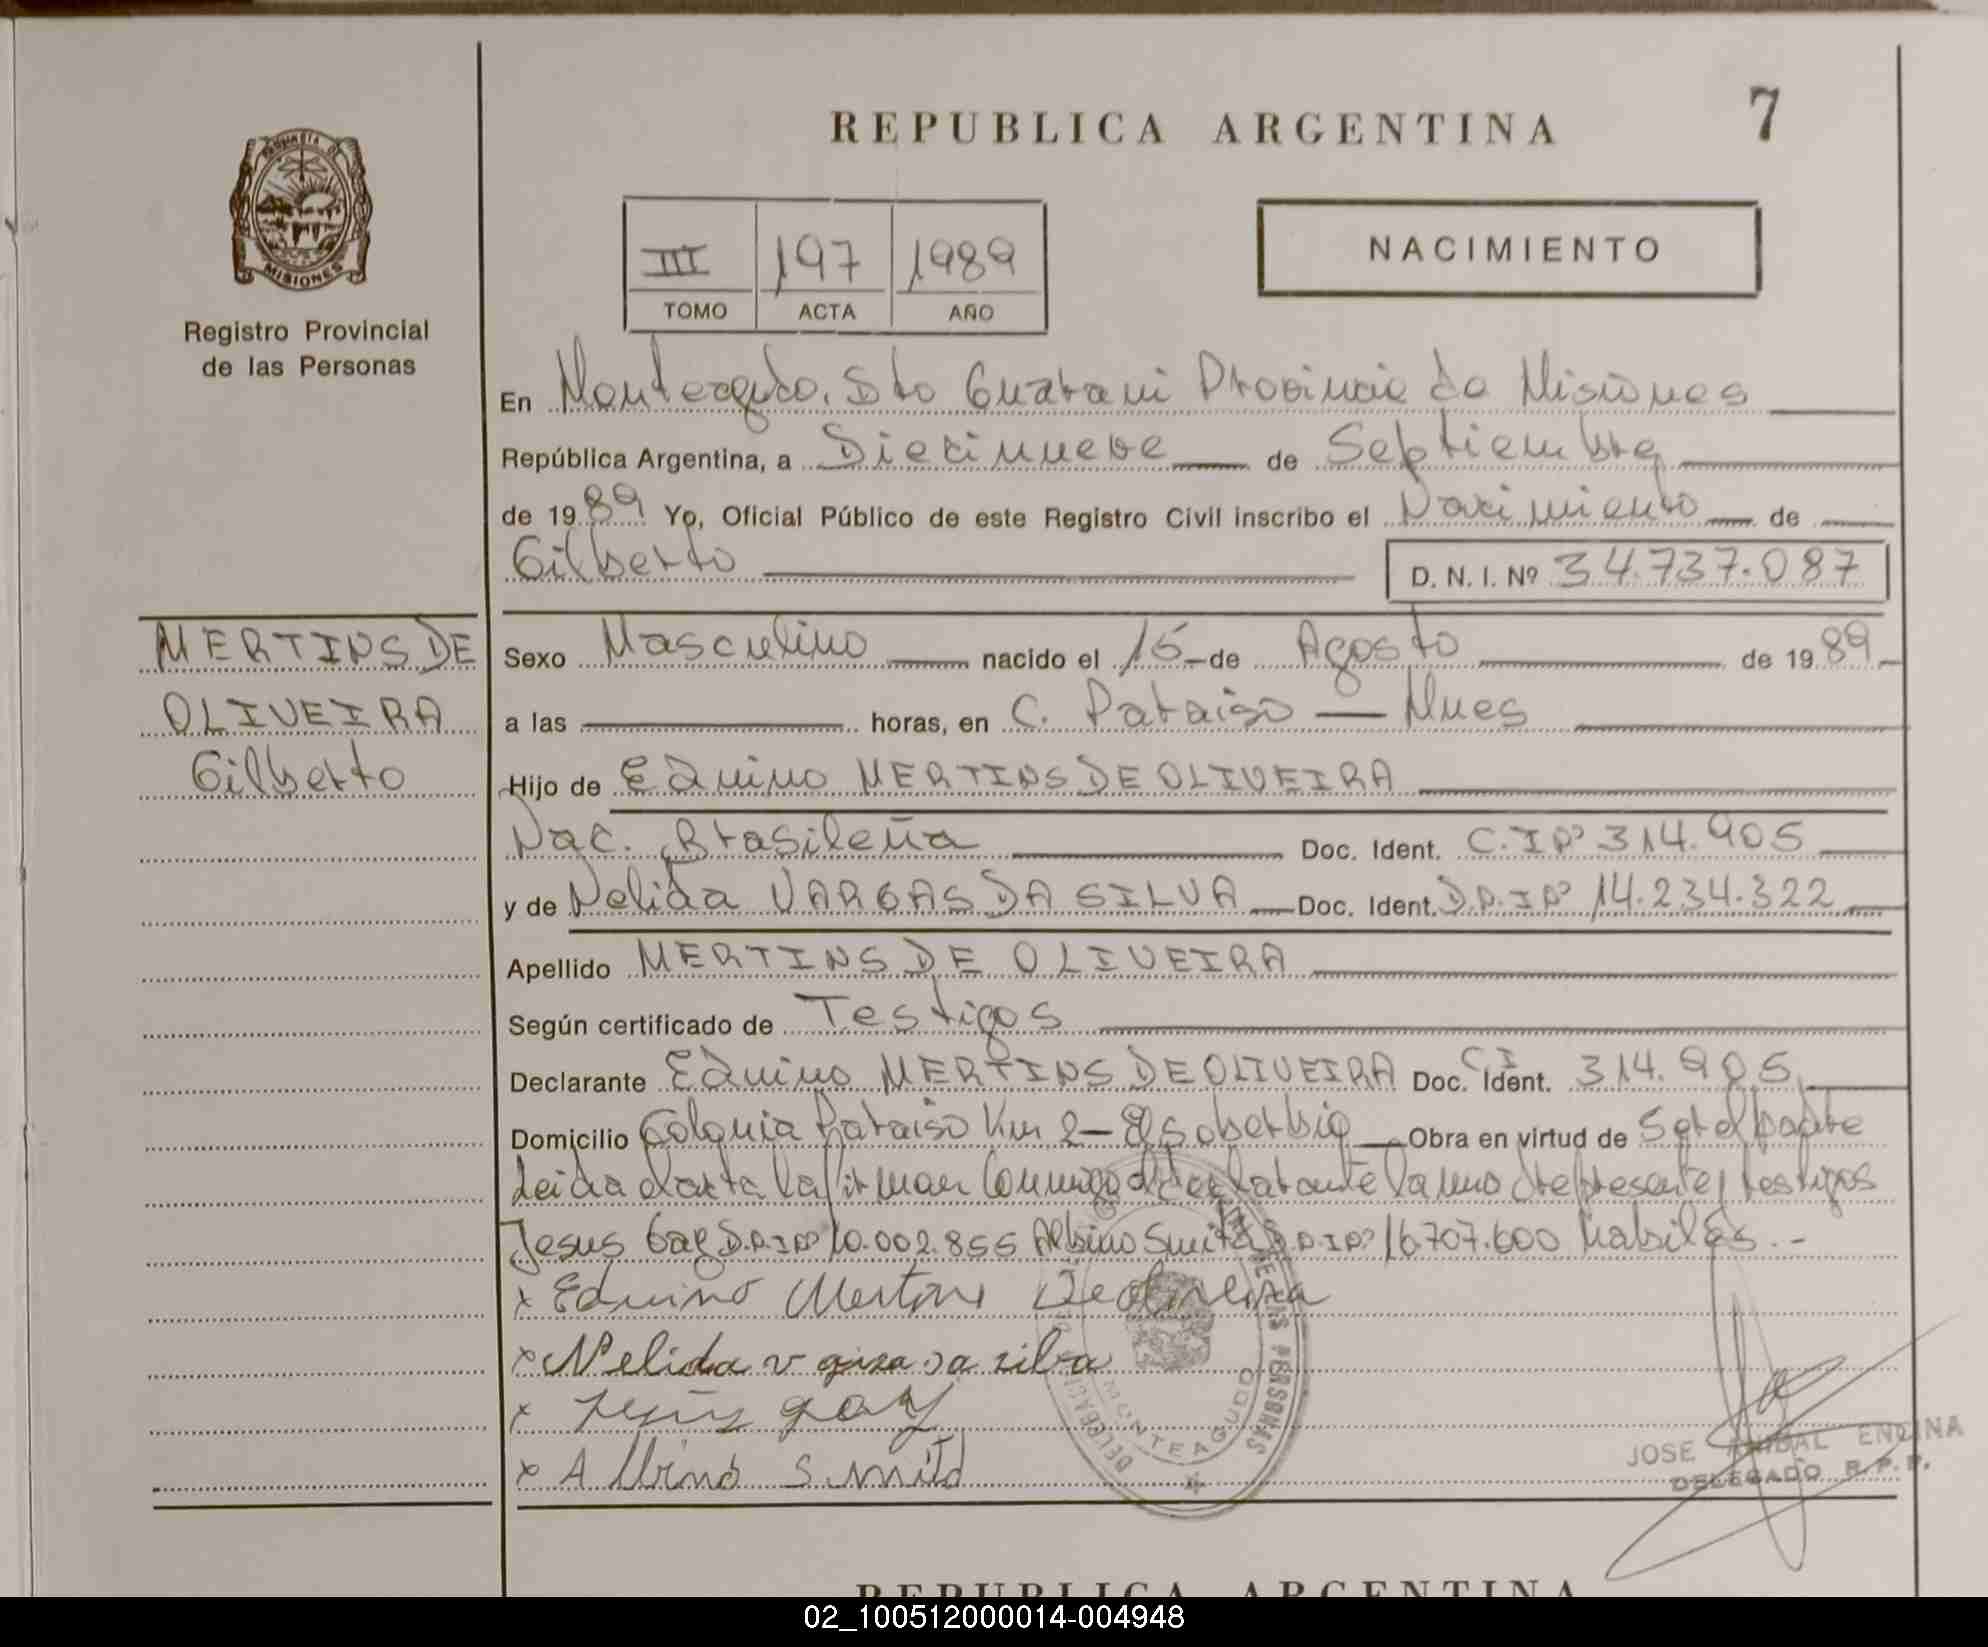 REPUBLICA ARGENTINA
7
PROVINCIA DE
MISIONES
Registro Provincial
de las Personas
III 197 1989
TOMO ACTA AÑO
NACIMIENTO
En Monteagudo, Dto Guarani Provincia de Misiones
República Argentina, a Diecinueve de Septiembre
de 1989 Yo, Oficial Público de este Registro Civil inscribo el Nacimiento de
Gilberto D. N. I. Nº 34.737.087
MERTINS DE
OLIVEIRA
Gilberto
Sexo Masculino nacido el 15 de Agosto de 1989
a las horas, en C. Paraiso - Mnes
Hijo de Edvino MERTINS DE OLIVEIRA
Nac. Brasileña Doc. Ident. C.I Nº 314.905
y de Nelida VARGAS DA SILVA Doc. Ident. D.N.I Nº 14.234.322
Apellido MERTINS DE OLIVEIRA
Según certificado de Testigos
Declarante Edvino MERTINS DE OLIVEIRA Doc. Ident. CI 314.905
Domicilio Colonia Paraiso Km 2 - El soberbio Obra en virtud de Ser el padre
Leida el acta la firman conmigo el declarante la mno presente y testigos
Jesus Gay D.N.I Nº 10.002.855 Albino Smith D.N.I Nº 16.707.600 habiles.-
x Edvino Mertins De Oliveira
x Nelida v da silva
x gay
x Albino Smith
DELEGACION MONTEAGUDO
DE LAS PERSONAS
JOSE ANIBAL ENCINA
DELEGADO R.P.P.
REPUBLICA ARGENTINA
02_100512000014-004948